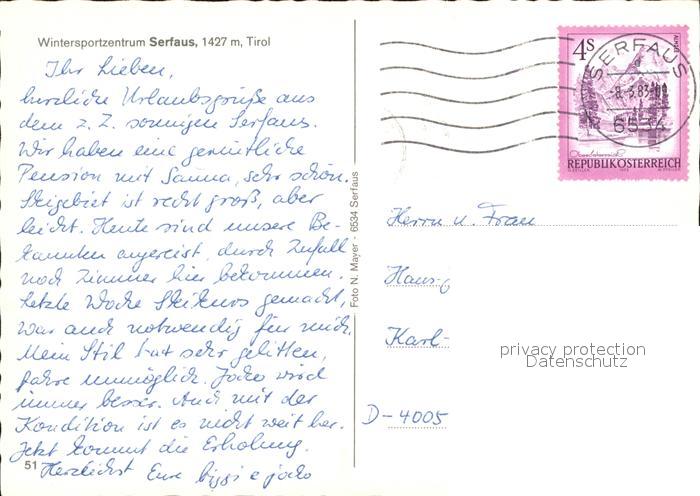 Wintersportzentrum Serfaus, 1427 m, Tirol
Ihr Lieben,
herzliche Urlaubsgrüße aus
dem z. Z. sonnigen Serfaus.
Wir haben eine gemütliche
Pension mit Sauna, sehr schön.
Skigebiet ist recht groß, aber
leicht. Heute sind unsere Be-
kannten angereist, durch Zufall
noch Zimmer hier bekommen.
Letzte Woche Skikurs gemacht,
war auch notwendig für mich.
Mein Stil hat sehr gelitten,
fahre unmöglich. Jocko wird
immer besser. Auch mit der
Kondition ist es nicht weit her.
Jetzt kommt die Erholung.
Herzlichst Eure
51
Foto N. Mayer · 6534 Serfaus
4S
REPUBLIK ÖSTERREICH
SERFAUS
-8.-3.83
6534
Herrn u. Frau
Hans-
Karl-
D-4005
privacy protection
Datenschutz